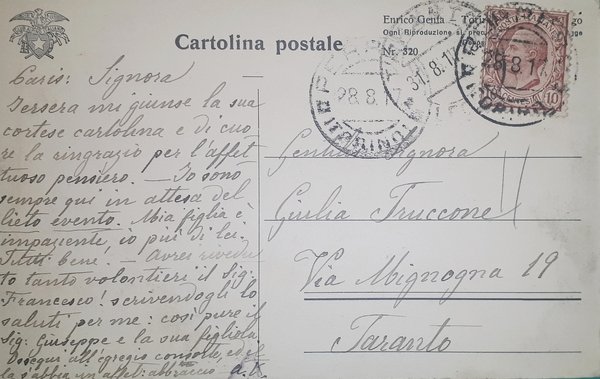 Cartolina postale
Enrico Genta Torino
Ogni Riproduzione
Nr. 320
28.8.17
(TORINO)
31.8.17
28.8.17
(TORINO)
10
Caris: Signora
Iersera mi giunse la sua
cortese cartolina e di cuo
re la ringrazio per l'affet
tuoso pensiero. — Io sono
sempre qui in attesa del
lieto evento. Mia figlia è
impaziente, io più di lei.
Tutti bene! — Avrei rivedu
to tanto volontieri il Sig.
Francesco! scrivendogli lo
saluti per me: così pure il
Sig: Giuseppe e la sua figliola
Ossequi all'egregio consorte, ed ella
s'abbia un affet: abbraccio
Gentil: Signora
Giulia Truccone
Via Mignogna 19
Taranto